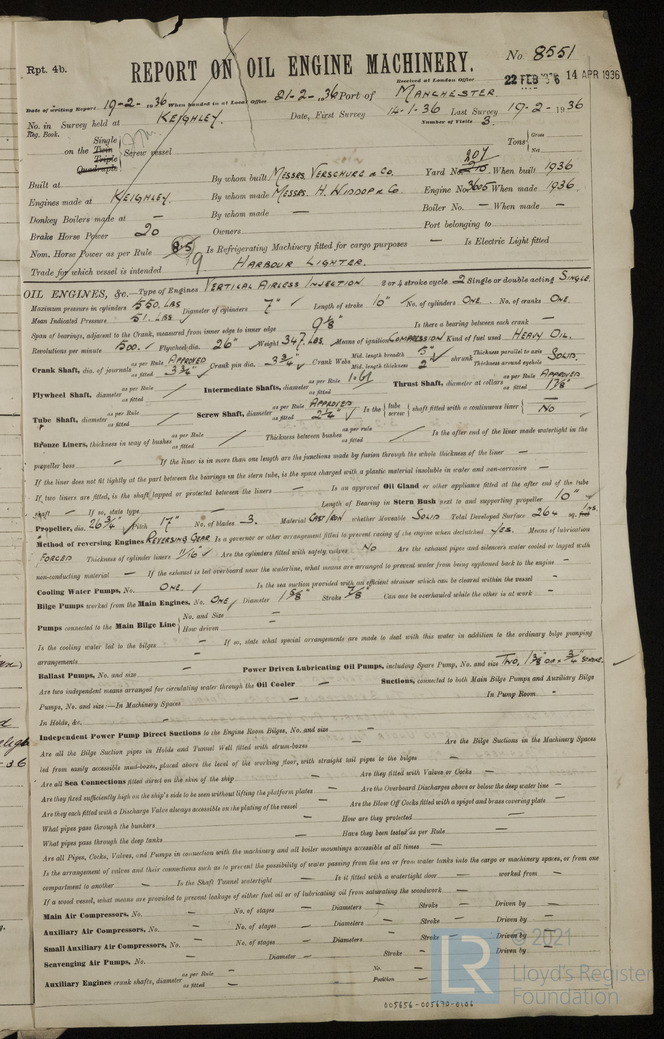 Rpt. 4b.
REPORT ON OIL ENGINE MACHINERY.
No. 8551
Received at London Office 22 FEB 1936 14 APR 1936
Date of writing Report 19-2-1936 When handed in at Local Office 21-2-1936 Port of MANCHESTER
No. in Survey held at KEIGHLEY. Date, First Survey 14-1-36 Last Survey 19-2-1936
Reg. Book. Number of Visits 3.
on the Single Twin Triple Quadruple Screw vessel Tons Gross Net
Built at By whom built MESSRS. VERSCHURE & CO. Yard No. 207 When built 1936
Engines made at KEIGHLEY. By whom made MESSRS. H. WIDDOP & CO. Engine No. 3605 When made 1936.
Donkey Boilers made at — By whom made — Boiler No. — When made —
Brake Horse Power 20 Owners Port belonging to
Nom. Horse Power as per Rule 9 Is Refrigerating Machinery fitted for cargo purposes — Is Electric Light fitted
Trade for which vessel is intended HARBOUR LIGHTER.
OIL ENGINES, &c.—Type of Engines VERTICAL AIRLESS INJECTION. 2 or 4 stroke cycle 2 Single or double acting SINGLE.
Maximum pressure in cylinders 550. LBS Diameter of cylinders 7" Length of stroke 10" No. of cylinders ONE. No. of cranks ONE.
Mean Indicated Pressure 51. LBS
Span of bearings, adjacent to the Crank, measured from inner edge to inner edge 9 1/8" Is there a bearing between each crank —
Revolutions per minute 500. Flywheel dia. 26" Weight 347. LBS Means of ignition COMPRESSION Kind of fuel used HEAVY OIL.
Crank Shaft, dia. of journals as per Rule APPROVED as fitted 3 3/4" Crank pin dia. 3 3/4" Crank Webs Mid. length breadth 5" Mid. length thickness 2" shrunk Thickness parallel to axis Thickness around eyehole SOLID.
Flywheel Shaft, diameter as per Rule as fitted Intermediate Shafts, diameter as per Rule 1.61 as fitted Thrust Shaft, diameter at collars as per Rule APPROVED as fitted 1 7/8"
Tube Shaft, diameter as per Rule as fitted Screw Shaft, diameter as per Rule APPROVED as fitted 2 1/4" Is the tube screw shaft fitted with a continuous liner — No
Bronze Liners, thickness in way of bushes as per Rule as fitted Thickness between bushes as per rule as fitted Is the after end of the liner made watertight in the
propeller boss — If the liner is in more than one length are the junctions made by fusion through the whole thickness of the liner —
If the liner does not fit tightly at the part between the bearings in the stern tube, is the space charged with a plastic material insoluble in water and non-corrosive —
If two liners are fitted, is the shaft lapped or protected between the liners — Is an approved Oil Gland or other appliance fitted at the after end of the tube
shaft — If so, state type — Length of Bearing in Stern Bush next to and supporting propeller 10"
Propeller, dia. 26 3/4" Pitch 17" No. of blades 3. Material CAST IRON whether Moveable SOLID Total Developed Surface 264 sq. ins.
Method of reversing Engines REVERSING GEAR Is a governor or other arrangement fitted to prevent racing of the engine when declutched YES. Means of lubrication
FORCED Thickness of cylinder liners 11/16" Are the cylinders fitted with safety valves No Are the exhaust pipes and silencers water cooled or lagged with
non-conducting material — If the exhaust is led overboard near the waterline, what means are arranged to prevent water from being syphoned back to the engine —
Cooling Water Pumps, No. ONE. Is the sea suction provided with an efficient strainer which can be cleared within the vessel —
Bilge Pumps worked from the Main Engines, No. ONE Diameter 1 5/8" Stroke 7/8" Can one be overhauled while the other is at work —
Pumps connected to the Main Bilge Line No. and Size — How driven —
Is the cooling water led to the bilges — If so, state what special arrangements are made to deal with this water in addition to the ordinary bilge pumping
arrangements —
Ballast Pumps, No. and size — Power Driven Lubricating Oil Pumps, including Spare Pump, No. and size TWO, 1 3/8" DIA × 3/4" STROKE.
Are two independent means arranged for circulating water through the Oil Cooler — Suctions, connected to both Main Bilge Pumps and Auxiliary Bilge
Pumps, No. and size:—In Machinery Spaces — In Pump Room —
In Holds, &c. —
Independent Power Pump Direct Suctions to the Engine Room Bilges, No. and size —
Are all the Bilge Suction pipes in Holds and Tunnel Well fitted with strum-boxes — Are the Bilge Suctions in the Machinery Spaces
led from easily accessible mud-boxes, placed above the level of the working floor, with straight tail pipes to the bilges —
Are all Sea Connections fitted direct on the skin of the ship — Are they fitted with Valves or Cocks —
Are they fixed sufficiently high on the ship's side to be seen without lifting the platform plates — Are the Overboard Discharges above or below the deep water line —
Are they each fitted with a Discharge Valve always accessible on the plating of the vessel — Are the Blow Off Cocks fitted with a spigot and brass covering plate —
What pipes pass through the bunkers — How are they protected —
What pipes pass through the deep tanks — Have they been tested as per Rule —
Are all Pipes, Cocks, Valves, and Pumps in connection with the machinery and all boiler mountings accessible at all times —
Is the arrangement of valves and their connections such as to prevent the possibility of water passing from the sea or from water tanks into the cargo or machinery spaces, or from one
compartment to another — Is the Shaft Tunnel watertight — Is it fitted with a watertight door — worked from —
If a wood vessel, what means are provided to prevent leakage of either fuel oil or of lubricating oil from saturating the woodwork —
Main Air Compressors, No. — No. of stages — Diameters — Stroke — Driven by —
Auxiliary Air Compressors, No. — No. of stages — Diameters — Stroke — Driven by —
Small Auxiliary Air Compressors, No. — No. of stages — Diameters — Stroke — Driven by —
Scavenging Air Pumps, No. — Diameter — Stroke — Driven by —
Auxiliary Engines crank shafts, diameter as per Rule — as fitted — No. — Position —
LR © 2021
Lloyd's Register
Foundation
005656-005670-0106